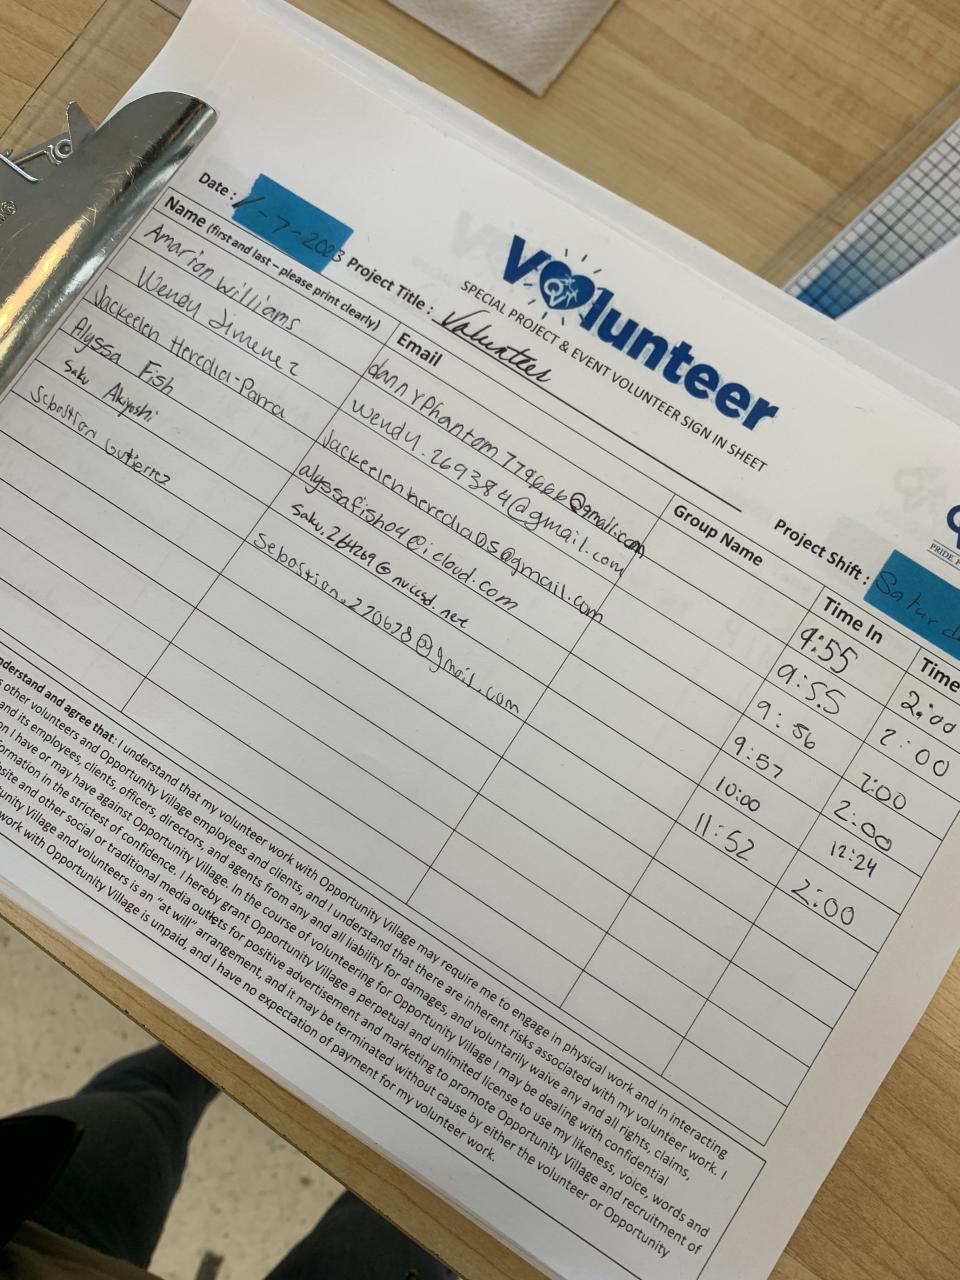 Volunteer
SPECIAL PROJECT & EVENT VOLUNTEER SIGN IN SHEET
Date : 1-7-2023 Project Title : Volunteer Project Shift :
PRIDE.
Name (first and last – please print clearly) Email Group Name Time In Time
Amarion Williams dannyPhantom779666@gmail.com 9:55 2:00
Wendy Jimenez wendy.269384@gmail.com 9:55 2:00
Jackeelen Heredia-Parra Jackeelenheredia05@gmail.com 9:56 2:00
Alyssa Fish alyssafish04@icloud.com 9:57 2:00
Saku Akiyoshi saku.264269@nv.ccsd.net 10:00 12:24
Sebastian Gutierrez Sebastian.270678@gmail.com 11:52 2:00
understand and agree that: I understand that my volunteer work with Opportunity Village may require me to engage in physical work and in interacting
other volunteers and Opportunity Village employees and clients, and I understand that there are inherent risks associated with my volunteer work. I
and its employees, clients, officers, directors, and agents from any and all liability for damages, and voluntarily waive any and all rights, claims,
I have or may have against Opportunity Village. In the course of volunteering for Opportunity Village I may be dealing with confidential
in the strictest of confidence. I hereby grant Opportunity Village a perpetual and unlimited license to use my likeness, voice, words and
and other social or traditional media outlets for positive advertisement and marketing to promote Opportunity Village and recruitment of
Village and volunteers is an “at will” arrangement, and it may be terminated without cause by either the volunteer or Opportunity
work with Opportunity Village is unpaid, and I have no expectation of payment for my volunteer work.